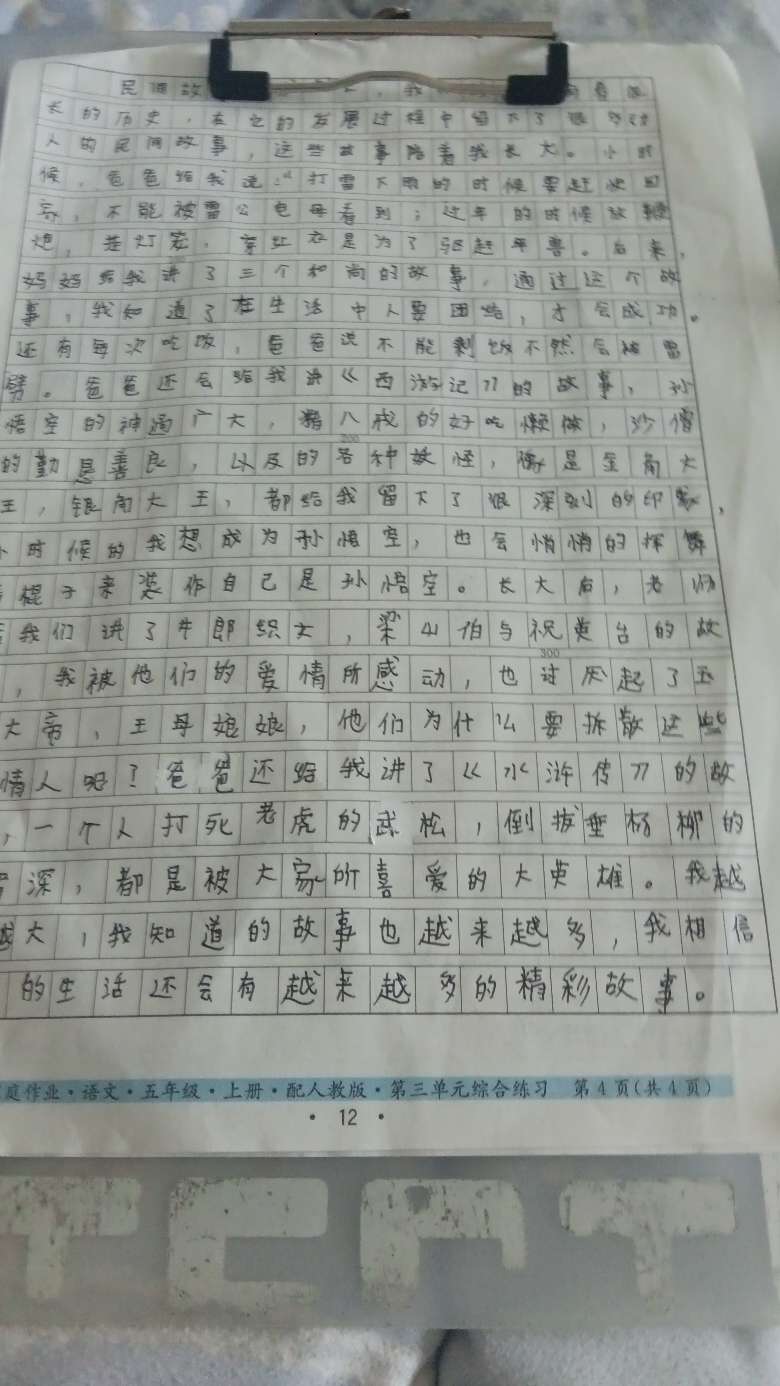 民间故
长的历史，在它的发展过程中留下了很多动
人的民间故事，这些故事陪着我长大。小时
候，爸爸给我说：“打雷下雨的时候要赶快回
家，不能被雷公电母看到；过年的时候放鞭
炮，挂灯笼，穿红衣是为了驱赶年兽。后来，
妈妈给我讲了三个和尚的故事，通过这个故
事，我知道了在生活中人要团结，才会成功。
还有每次吃饭，爸爸说不能剩饭不然会被雷
劈。爸爸还会给我讲《西游记》的故事，孙
悟空的神通广大，猪八戒的好吃懒做，沙僧
200
的勤恳善良，以及的各种妖怪，像是金角大
王，银角大王，都给我留下了很深刻的印象，
小时候的我想成为孙悟空，也会悄悄的挥舞
棍子来装作自己是孙悟空。长大后，老师
给我们讲了牛郎织女，梁山伯与祝英台的故
300
，我被他们的爱情所感动，也讨厌起了玉
大帝，王母娘娘，他们为什么要拆散这些
情人呢？爸爸还给我讲了《水浒传》的故
，一个人打死老虎的武松，倒拔垂杨柳的
深，都是被大家所喜爱的大英雄。我越
越大，我知道的故事也越来越多，我相信
的生活还会有越来越多的精彩故事。
庭作业·语文·五年级·上册·配人教版·第三单元综合练习 第4页（共4页）
·12·